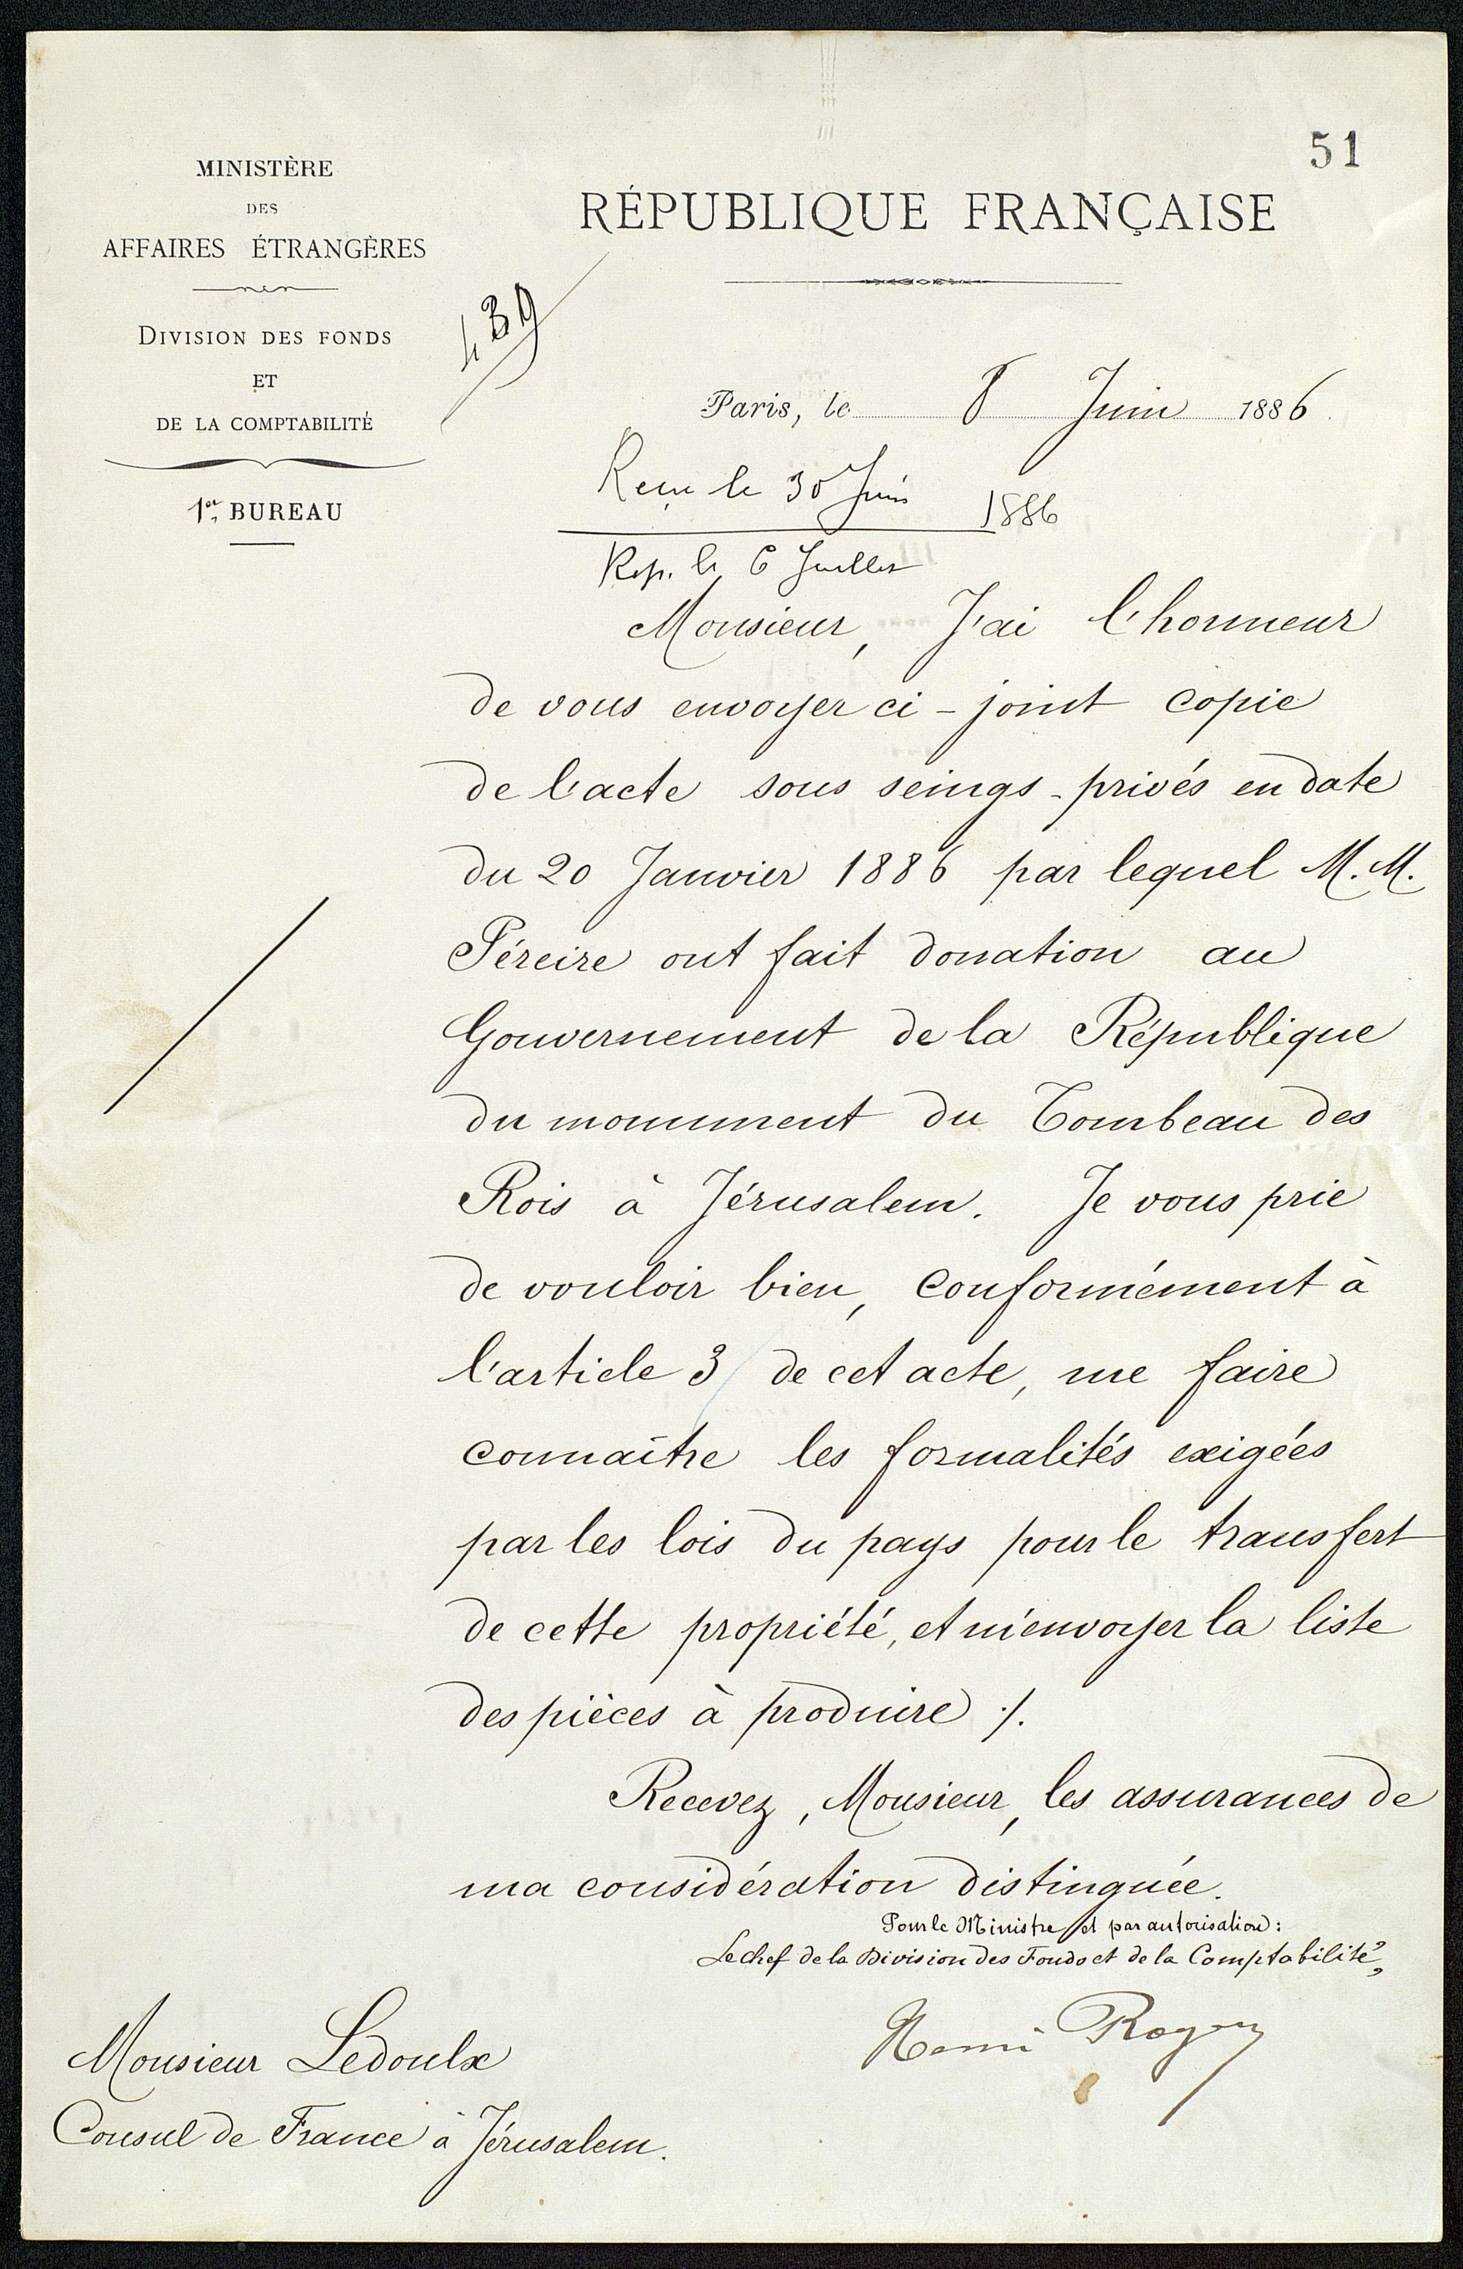 51
MINISTÈRE
DES
AFFAIRES ÉTRANGÈRES
DIVISION DES FONDS
ET
DE LA COMPTABILITÉ
1er BUREAU
RÉPUBLIQUE FRANÇAISE
439
Paris, le 8 Juin 1886
Reçu le 30 Juin 1886
Rep. le 6 Juillet
Monsieur, J'ai l'honneur
de vous envoyer ci-joint copie
de l'acte sous seings-privés en date
du 20 Janvier 1886 par lequel M.M.
Péreire ont fait donation au
Gouvernement de la République
du monument du Tombeau des
Rois à Jérusalem. Je vous prie
de vouloir bien, conformément à
l'article 3 de cet acte, me faire
connaître les formalités exigées
par les lois du pays pour le transfert
de cette propriété, et m'envoyer la liste
des pièces à produire ./.
Recevez, Monsieur, les assurances de
ma considération distinguée.
Pour le Ministre et par autorisation:
Le chef de la Division des Fonds et de la Comptabilité,
Monsieur Ledoulx
Consul de France à Jérusalem.